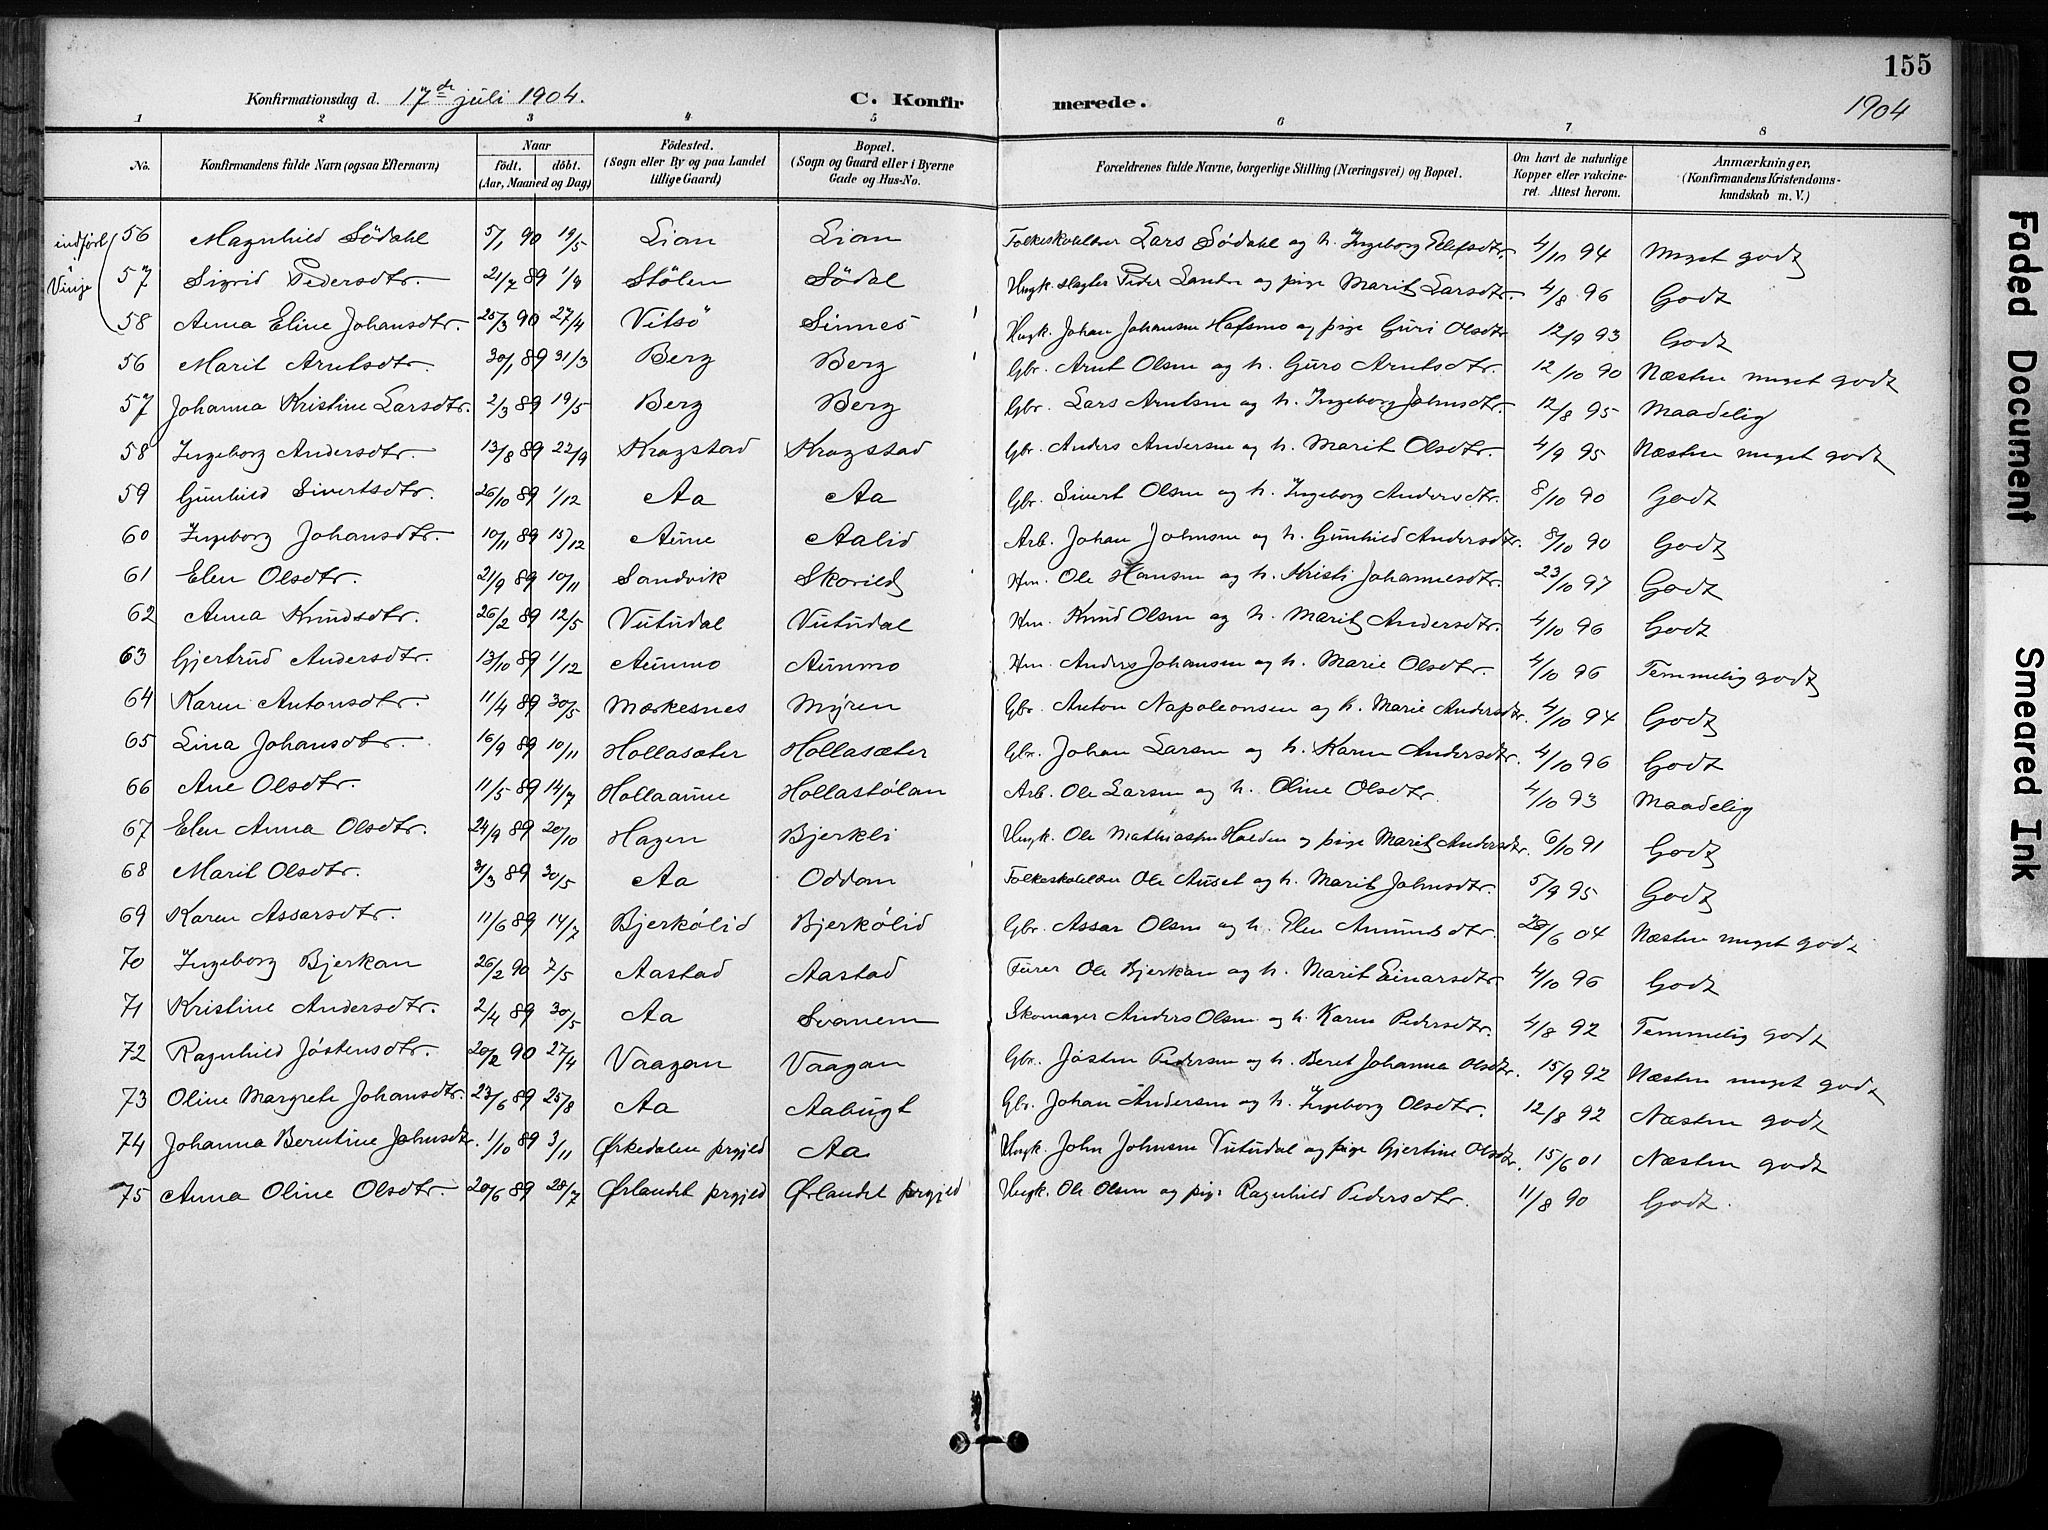 155
Konfirmationsdag d. 17de juli 1904. C. Konfirmerede. 1904
1 2 3 4 5 6 7 8
No. Konfirmandens fulde Navn (ogsaa Efternavn) Naar födt. döbt. (Aar, Maaned og Dag) Födested. (Sogn eller By og paa Landet tillige Gaard) Bopæl. (Sogn og Gaard eller i Byerne Gade og Hus-No. Forældrenes fulde Navne, borgerlige Stilling (Næringsvei) og Bopæl. Om havt de naturlige Kopper eller vakcineret. Attest herom. Anmærkninger. (Konfirmandens Kristendomskundskab m. V.)
indført Vinje
56 Magnhild Södahl 5/1 90 19/5 Lian Lian Folkeskolelærer Lars Södahl og h. Ingeborg Ellefsdtr. 4/10 94 Meget godt
57 Sigrid Pedersdtr. 21/7 89 1/9 Stölen Södal Ungk. Peder og pige Marit Larsdtr. 4/8 96 Godt
58 Anna Eline Johansdtr. 25/3 90 27/4 Vitsö Sinnes Ungk. Johan Johansen Hafsmo og pige Guri Olsdtr 12/9 93 Godt
56 Marit Arntsdtr. 30/1 89 31/3 Berg Berg Gbr. Arnt Olsen og h. Guro Arntsdtr. 12/10 90 Næsten meget godt
57 Johanna Kristine Larsdtr. 2/3 89 19/5 Berg Berg Gbr. Lars Arntsen og h. Ingeborg Johnsdtr. 12/8 95 Maadelig
58 Ingeborg Andersdtr. 13/8 89 22/9 Krogstad Krogstad Gbr. Anders Andersen og h. Marit Olsdtr. 4/9 95 Næsten meget godt
59 Gunhild Sivertsdtr. 26/10 89 1/12 Aa Aa Gbr. Sivert Olsen og h. Ingeborg Andersdtr. 8/10 90 Godt
60 Ingeborg Johansdtr. 10/11 89 15/12 Aune Aalid Arb. Johan Johnsen og h. Gunhild Andersdtr. 8/10 90 Godt
61 Elen Olsdtr. 21/9 89 10/11 Sandvik Skorild Hm. Ole Hansen og h. Kristi Johannesdtr. 23/10 97 Godt
62 Anna Knudsdtr. 26/2 89 12/5 Vutudal Vutudal Hm. Knud Olsen og h. Marit Andersdtr. 4/10 96 Godt
63 Gjertrud Andersdtr. 13/10 89 1/12 Aunmo Aunmo Hm. Anders Johansen og h. Marie Olsdtr. 4/10 96 Temmelig godt
64 Karen Antonsdtr. 11/4 89 30/5 Mærkesnes Myren Gbr. Anton Napoleonsen og h. Marie Andersdtr. 4/10 94 Godt
65 Lina Johansdtr. 16/9 89 10/11 Hollasæter Hollasæter Gbr. Johan Larsen og h. Karen Andersdtr. 4/10 96 Godt
66 Ane Olsdtr. 11/5 89 14/7 Hollaaune Hollastölan Arb. Ole Larsen og h. Oline Olsdtr. 4/10 93 Maadelig
67 Elen Anna Olsdtr. 24/9 89 20/10 Hagen Bjerkli Ungk. Ole Mathiassen Halden og pige Marit Andersdtr. 6/10 91 Godt
68 Marit Olsdtr. 31/3 89 30/5 Aa Oddan Folkeskolelærer Ole Auset og h. Marit Johnsdtr. 5/9 95 Godt
69 Karen Assarsdtr. 11/6 89 14/7 Bjerkölid Bjerkölid Gbr. Assar Olsen og h. Elen Amundsdtr. 28/6 04 Næsten meget godt
70 Ingeborg Bjerkan 26/2 90 7/5 Aastad Aastad Furer Ole Bjerkan og h. Marit Einarsdtr 4/10 96 Godt
71 Kristine Andersdtr. 2/4 89 30/5 Aa Svanem Skomager Anders Olsen og h. Karen Pedersdtr. 4/8 92 Temmelig godt
72 Ragnhild Jöstensdtr. 20/2 90 27/4 Vaagan Vaagan Gbr. Jösten Pedersen og h. Beret Johanna Olsdtr. 15/9 92 Næsten meget godt
73 Oline Margrete Johansdtr. 23/6 89 25/8 Aa Aabugt Gbr. Johan Andersen og h. Ingeborg Olsdtr. 12/8 92 Næsten godt
74 Johanna Berntine Johnsdtr. 1/10 89 3/11 Ørkedalen prgjld Aa Ungk. John Johnsen Vutudal og pige Gjertine Olsdtr. 15/6 01 Næsten godt
75 Anna Oline Olsdtr. 20/6 89 28/7 Ørlandet prgjeld Ørlandet prgjeld Ungk. Ole Olsen og pige Ragnhild Pedersdtr. 11/8 90 Godt.
Faded Document
Smeared Ink